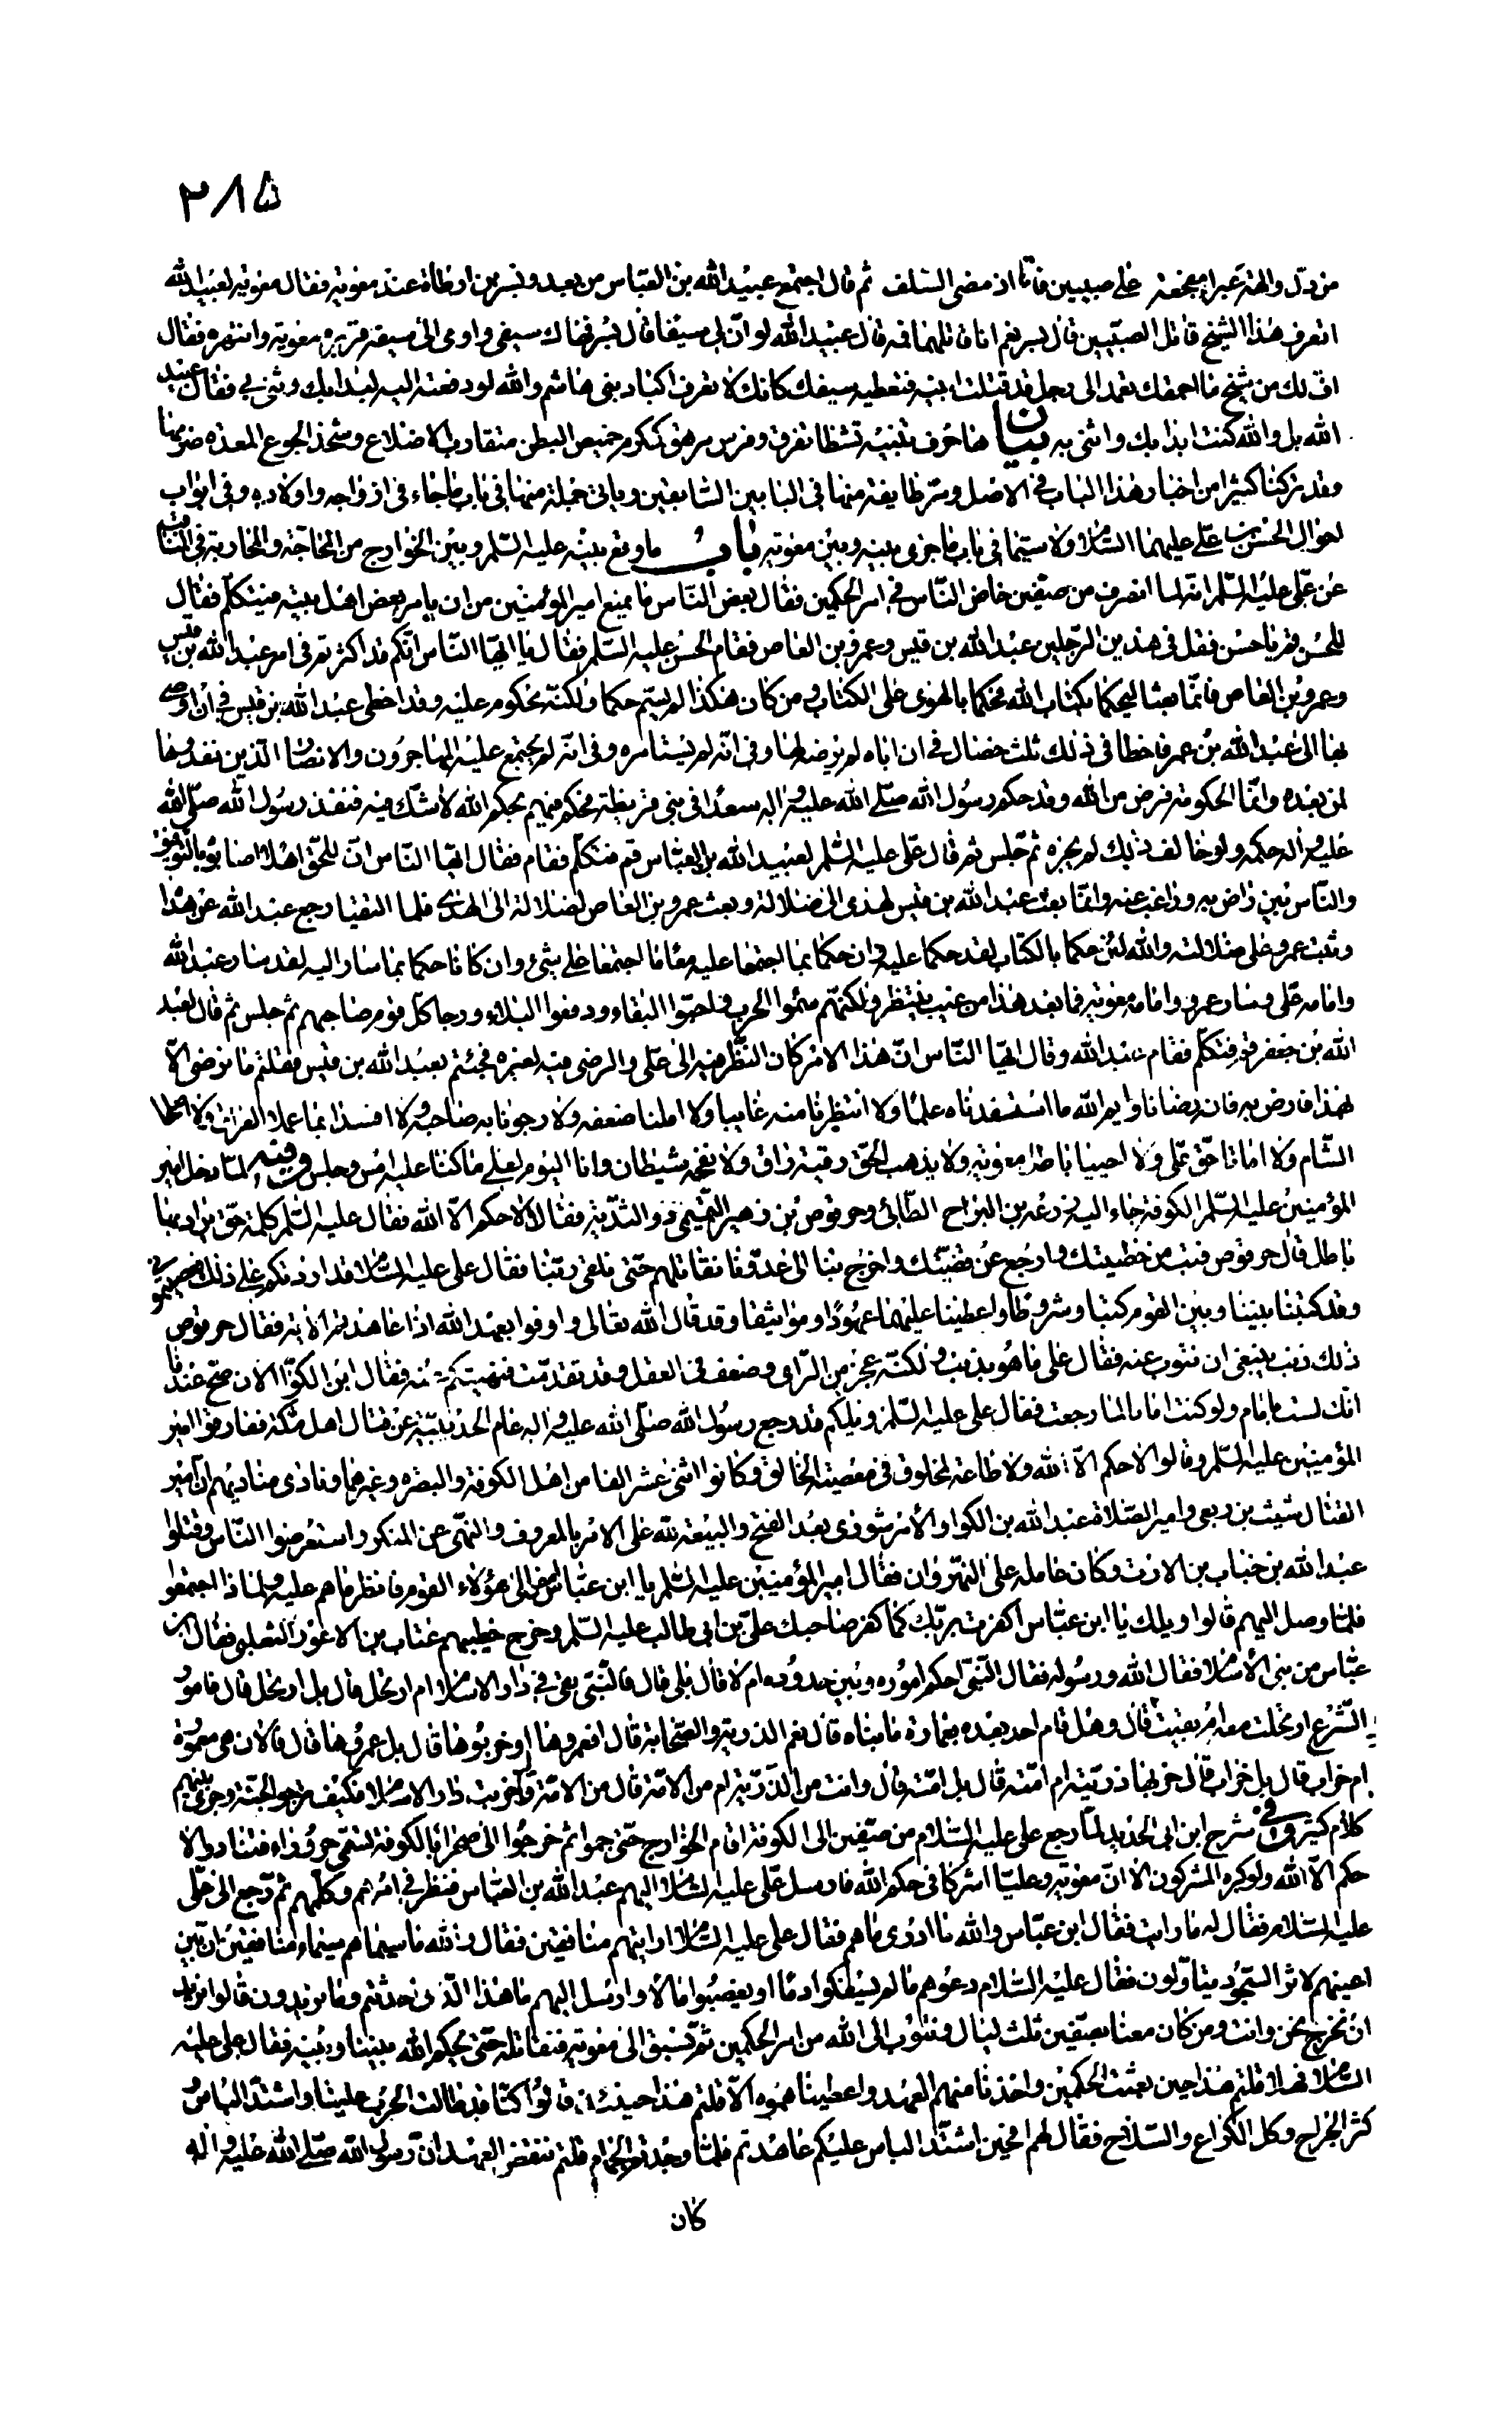 ٣٨۵
من دل والهة عبرا مفجعة على صبيين فاتا اذ مضى السلف ثم قال اجتمع عبيد الله بن العباس من بعد وبسر بن ارطاة عند معوية فقال معوية لعبيد الله
اتعرف هذا الشيخ قاتل الصبيين قال بسر نعم انا قاتلهما فمه قال عبيد الله لو ان لي سيفا قال بسر فهاك سيفي واومى الى سيفه فزبره معوية وانتهره فقال
اف لك من شيخ ما احمقك تعمد الى رجل قد قتلت ابنيه فتعطيه سيفك كانك لا تعرف اكباد بني هاشم والله لو دفعته اليه لبدا بك وثنى بي فقال عبيد
الله بل والله كنت ابدا بك واثني به بيان ها حرف تنبيه تشظا تفرق وفرس مرهق كمكرم خميص البطن متقارب الاضلاع وشحذ الجوع المعدة ضرمها
وقد تركنا كثيرا من اخبار هذا الباب في الاصل ومر طايفة منها في البابين السابقين وياتي جملة منها في باب ما جاء في ازواجه واولاده وفي ابواب
احوال الحسن بن علي عليهما السلام ولا سيما في باب ما جرى بينه وبين معوية باب ما وقع بينه عليه السلم وبين الخوارج من المحاجة والمحاربة في المناقب
عن علي عليه السلم انه لما انصرف من صفين خاض الناس في امر الحكمين فقال بعض الناس ما يمنع امير المؤمنين من ان يامر بعض اهل بيته فيتكلم فقال
للحسن قم يا حسن فقل في هذين الرجلين عبد الله بن قيس وعمرو بن العاص فقام الحسن عليه السلم فقال يا ايها الناس انكم قد اكثرتم في امر عبد الله بن قيس
وعمرو بن العاص فانما بعثا ليحكما بكتاب الله فحكما بالهوى على الكتاب ومن كان هكذا لم يسم حكما ولكنه محكوم عليه وقد اخطى عبد الله بن قيس في ان اوصى
بها الى عبد الله بن عمر فاخطا في ذلك ثلث خصال في ان اباه لم يرضه لها وفي انه لم يستامره وفي انه لم يجتمع عليه المهاجرون والانصار الذين نفذوها
لمن بعده وانما الحكومة فرض من الله وقد حكم رسول الله صلى الله عليه واله سعدا في بني قريظة فحكم فيهم بحكم الله لا شك فيه فنفذ رسول الله صلى الله
عليه واله حكمه ولو خالف ذلك لم يجزه ثم جلس ثم قال علي عليه السلم لعبيد الله بن العباس قم فتكلم فقام فقال ايها الناس ان للحق اهلا اصابوه بالتوفيق
والناس بين راض به وراغب عنه وانما بعث عبد الله بن قيس لهدى الى ضلالة وبعث عمرو بن العاص لضلالة الى الهدى فلما التقيا رجع عبد الله عن هداه
وثبت عمرو على ضلالته والله لئن حكما بالكتاب لقد حكما عليه وان حكما بما اجتمعا عليه معا ما اجتمعا على شيء وان كانا حكما بما سارا اليه لقد سار عبد الله
وامامه علي وسار عمرو وامامه معوية فما بعد هذا من عيب ينتظر ولكنهم سئموا الحرب فاحبوا البقاء ودفعوا البلاء ورجا كل قوم صاحبهم ثم جلس ثم قال لعبد
الله بن جعفر قم فتكلم فقام عبد الله وقال ايها الناس ان هذا الامر كان النظر فيه الى علي والرضى فيه لغيره فجئتم بعبد الله بن قيس فقلتم ما نرضى الا
بهذا فارض به فانه رضانا وايم الله ما استفدناه علما ولا انتظرنا منه غايبا ولا املنا ضعفه ولا رجونا به صاحبه ولا افسدا بما عملا العراق ولا اصلحا
الشام ولا اماتا حق علي ولا احييا باطل معوية ولا يذهب الحق رقية راق ولا نفحة شيطان وانا اليوم لعلى ما كنا عليه امس وجلس وفيه لما دخل امير
المؤمنين عليه السلم الكوفة جاء اليه زرعة بن البراح الطائي وحرقوص بن زهير التميمي ذو الثدية فقال لا حكم الا الله فقال عليه السلم كلمة حق يراد بها
باطل قال حرقوص فتب من خطيئتك وارجع عن قضيتك واخرج بنا الى عدونا نقاتلهم حتى نلقى ربنا فقال علي عليه السلام قد اردتكم على ذلك فعصيتموني
وقد كتبنا بيننا وبين القوم كتبا وشروطا واعطينا عليها عهودا ومواثيقا وقد قال الله تعالى واوفوا بعهد الله اذا عاهدتم الاية فقال حرقوص
ذلك ذنب ينبغي ان تتوب عنه فقال علي ما هو بذنب ولكنه عجز من الراى وضعف في العقل وقد تقدمت فنهيتكم عنه فقال ابن الكوا الان صح عندنا
انك لست بامام ولو كنت اماما لما رجعت فقال علي عليه السلم ويلكم قد رجع رسول الله صلى الله عليه واله عام الحديبية عن قتال اهل مكة ففارقوا امير
المؤمنين عليه السلم وقالوا لا حكم الا لله ولا طاعة لمخلوق في معصية الخالق وكانوا اثنى عشر الفا من اهل الكوفة والبصرة وغيرهما ونادى مناديهم ان امير
القتال شبث بن ربعي وامير الصلاة عبد الله بن الكوا والامر شورى بعد الفتح والبيعة لله على الامر بالمعروف والنهي عن المنكر واستعرضوا الناس وقتلوا
عبد الله بن خباب بن الارت وكان عامله على النهروان فقال امير المؤمنين عليه السلم يا ابن عباس امض الى هؤلاء القوم فانظر ما هم عليه ولماذا اجتمعوا
فلما وصل اليهم قالوا ويلك يا ابن عباس اكفرت بربك كما كفر صاحبك علي بن ابي طالب عليه السلم وخرج خطيبهم عتاب بن الاعور الثعلبي فقال ابن
عباس من بنى الاسلام فقال الله ورسوله فقال النبي احكم اموره وبين حدوده ام لا قال بلى قال فالنبي بقى في دار الاسلام ام ارتحل قال بل ارتحل قال فامور
الشرع ارتحلت معه ام بقيت قال وهل قام احد بعده بعمارة ما بناه قال نعم الذرية والصحابة قال افعمروها او خربوها قال بل عمروها قال فالان هي معمورة
ام خراب قال بل خراب قال خربها ذريته ام امته قال بل امته قال وانت من الذرية ام من الامة قال من الامة قال وخربت دار الاسلام فكيف ترجو الجنة وجرى بينهم
كلام كثير وفي شرح ابن ابي الحديد لما رجع علي عليه السلام من صفين الى الكوفة اقام الخوارج حتى جموا ثم خرجوا الى صحراء بالكوفة تسمى حروراء فتنادوا لا
حكم الا لله ولو كره المشركون الا ان معوية وعليا اشركا في حكم الله فارسل علي عليه السلام اليهم عبد الله بن العباس فنظر في امرهم وكلمهم ثم رجع الى علي
عليه السلام فقال له ما رايت فقال ابن عباس والله ما ادرى ما هم فقال علي عليه السلام ارايتهم منافقين فقال والله ما سيماهم سيماء منافقين ان بين
اعينهم لاثر السجود يتاولون فقال عليه السلام دعوهم ما لم يسفكوا دما او يغصبوا مالا وارسل اليهم ما هذا الذي احدثتم وما تريدون قالوا نريد
ان نخرج نحن وانت ومن كان معنا بصفين ثلث ليال ونتوب الى الله من امر الحكمين ثم نسير الى معوية فنقاتله حتى يحكم الله بيننا وبينه فقال علي عليه
السلام فهلا قلتم هذا حين بعثت الحكمين واخذنا منهم العهد واعطيناهموه الا قلتم هذا حينئذ قالوا كنا قد طالت الحرب علينا واشتد الباس
كثر الجراح وكل الكراع والسلاح فقال لهم افحين اشتد الباس عليكم عاهدتم فلما وجدتم الجمام قلتم ننقض العهد ان رسول الله صلى الله عليه واله
كان